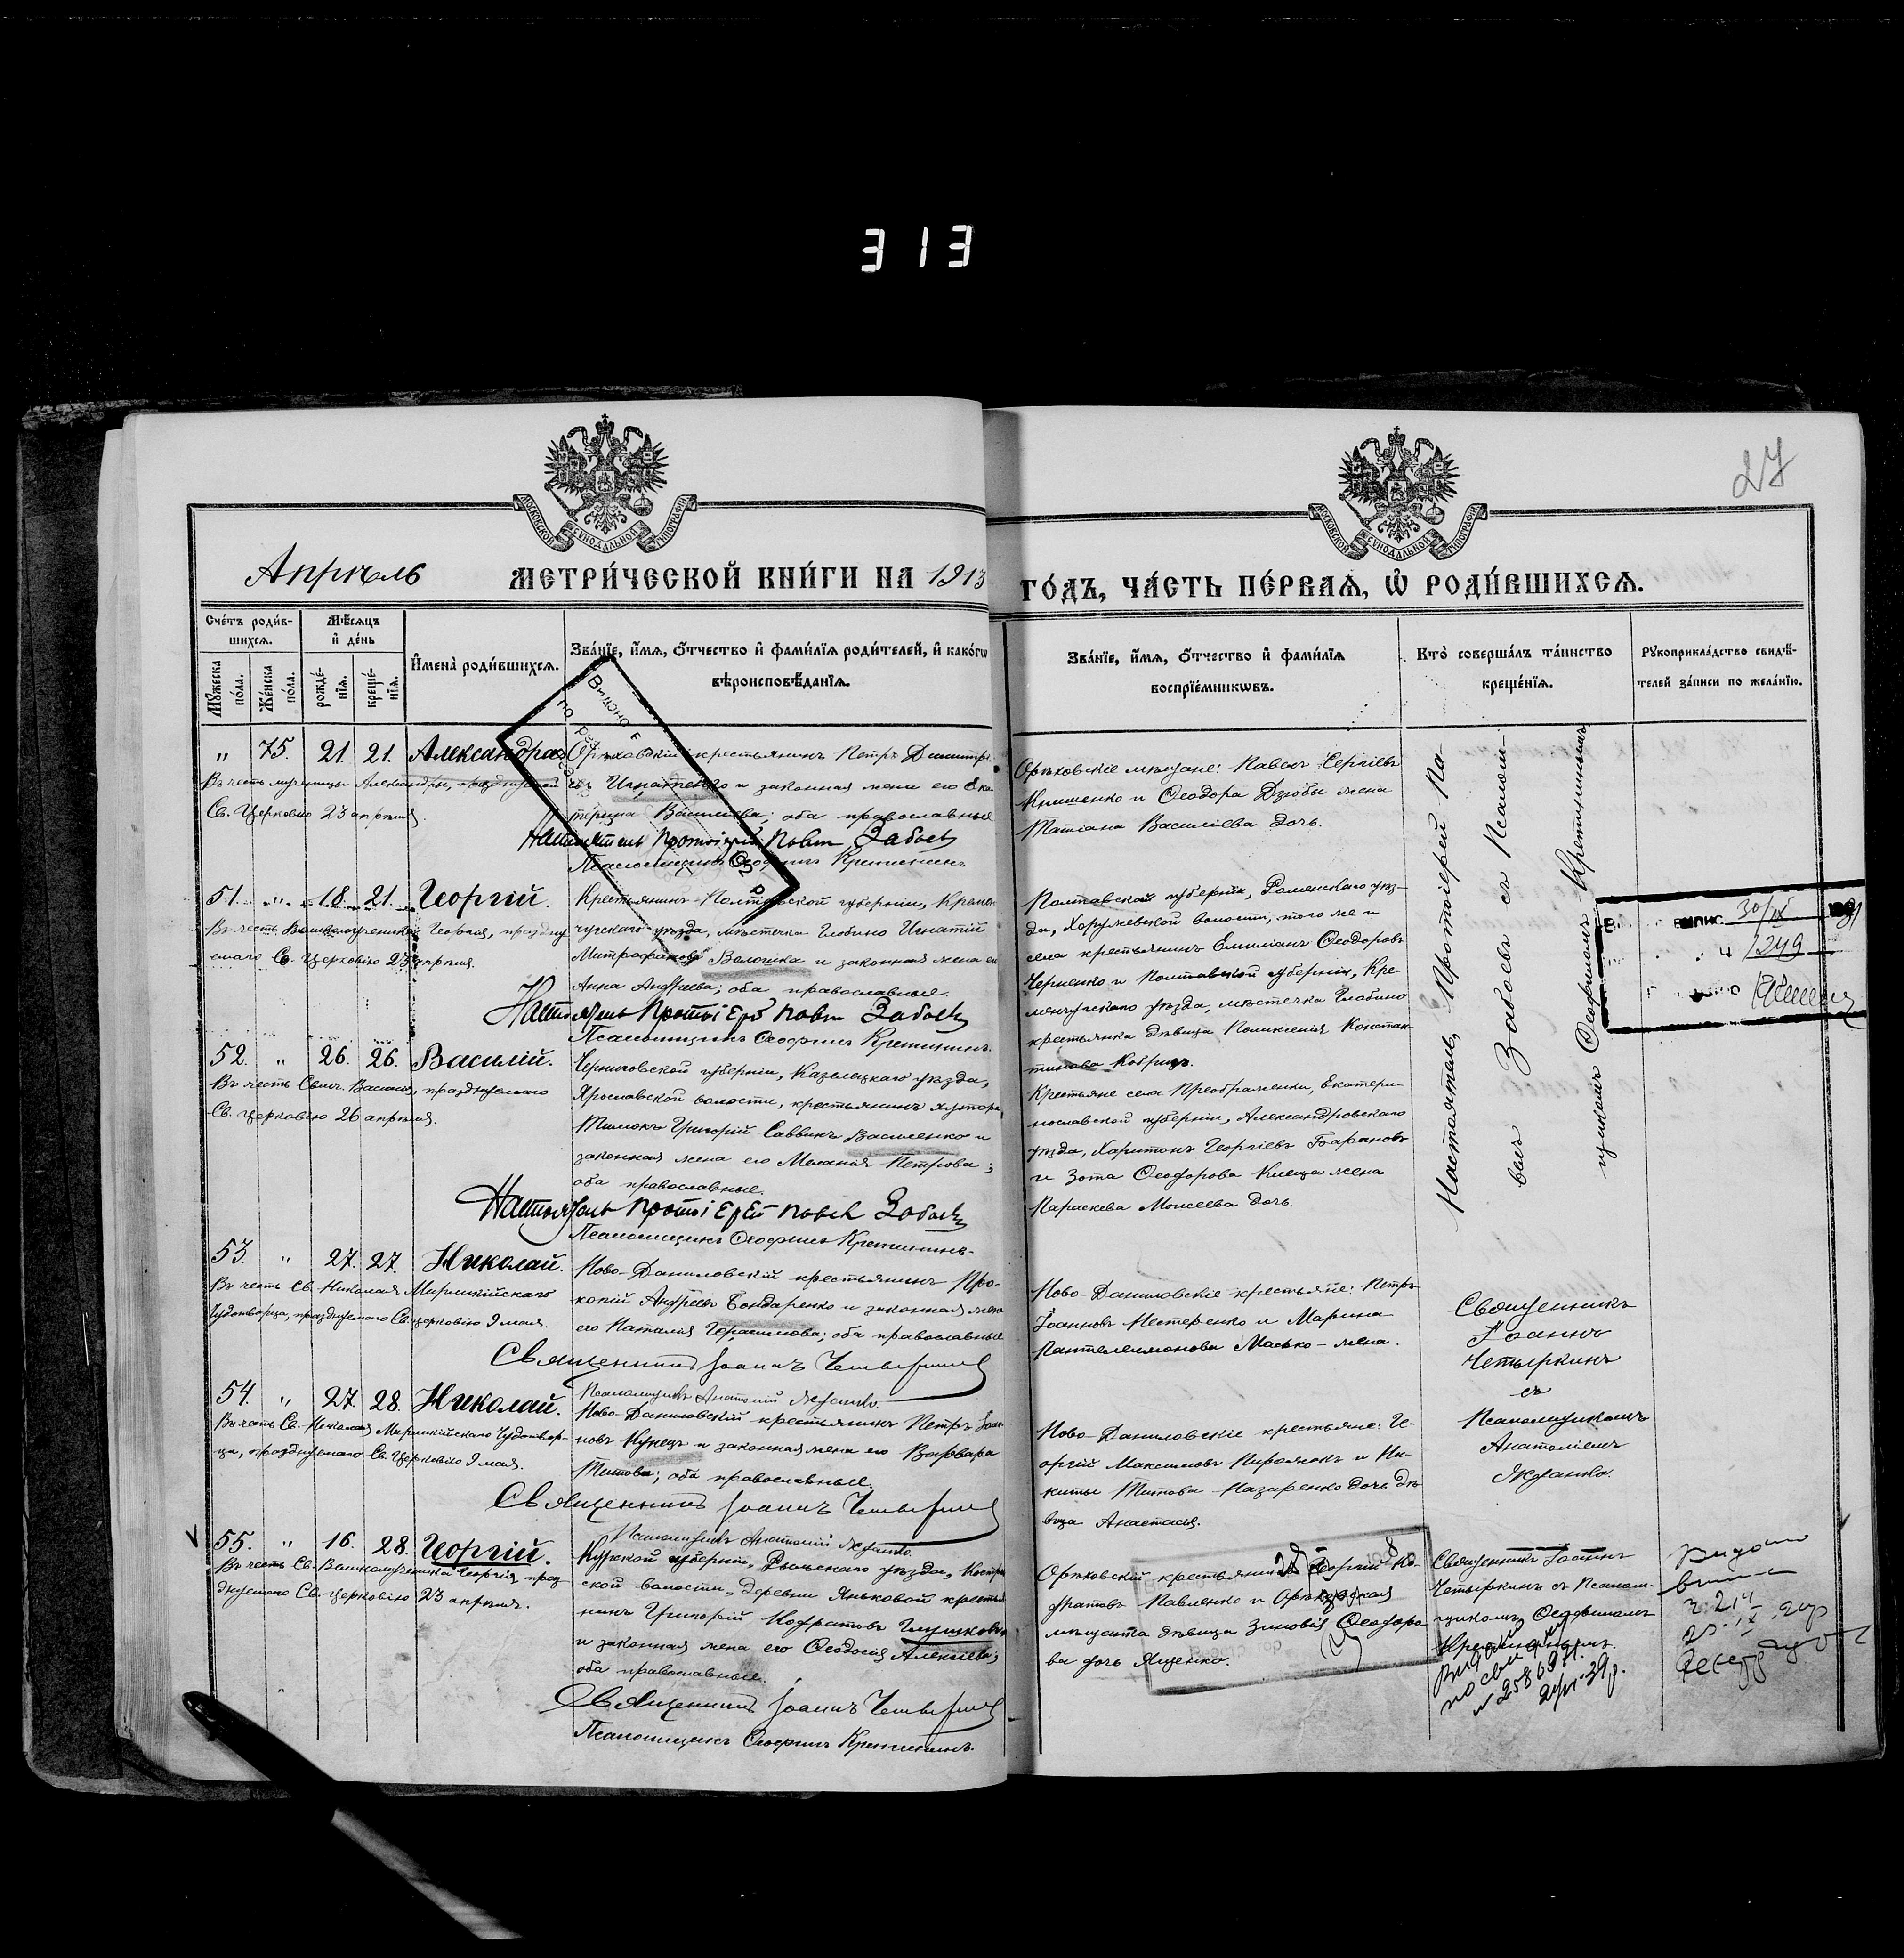 313
27
МОСКОВСКОЙ СѴНОДАЛЬНОЙ ТИПОГРАФІИ
МОСКОВСКОЙ СѴНОДАЛЬНОЙ ТИПОГРАФІИ
Апрѣль МЕТРИ́ЧЕСКОЙ КНИ́ГИ НА 1913
ГО́ДЪ, ЧА́СТЬ ПЕ́РВАѦ, Ѡ РОДИ́ВШИХСѦ.
Сче́тъ роди́в-
шихсѧ.
Мꙋжеска по́ла.
Же́нска по́ла.
Мѣ́сяцъ
и де́нь
рожде́-
нїѧ.
креще́-
нїѧ.
Имена̀ роди́вшихсѧ.
Зва́нїе, и́мѧ, о́тчество и фами́лїѧ роди́телей, и како́гѡ
вѣроисповѣ́данїѧ.
Зва́нїе, и́мѧ, о́тчество и фами́лїѧ
воспрїе́мникѡвъ.
Кто̀ соверша́лъ та́инство
креще́нїѧ.
Рꙋкоприкла́дство свидѣ́-
телей за́писи по жела́нїю.
" 75. 21. 21. Александра
Въ честь мученицы Александры, празднуемой
Св. Церковію 23 апрѣля.
Орѣховскій крестьянинъ Петръ Димитрі-
евъ Игнатенко и законная жена его Ека-
терина Васильева; оба православные
Настоятель Протоіерей Павелъ Забаев
Псаломщикъ Ѳеофилъ Кретининъ
Орѣховскіе мѣщане: Павелъ Сергіевъ
Книшенко и Ѳеодора Дзюбы жена
Татіана Василіева дочь.
Настоятель, Протоіерей Па-
велъ Забаевъ съ Псалом-
щикомъ Ѳеофиломъ Кретининымъ
51. " 18. 21. Георгій.
Въ честь Великомученика Георгія, праздну-
емаго Св. Церковію 23 апрѣля.
Крестьянинъ Полтавской губерніи, Кремен-
чугскаго уѣзда, мѣстечка Глобино Игнатій
Митрофановъ Волошка и законная жена его
Анна Андреева; оба православные.
Настоятель Протоіерей Павелъ Забаев
Псаломщикъ Ѳеофилъ Кретининъ.
Полтавской губерніи, Роменскаго уѣз-
да, Хоружевской волости, того же и
села крестьянинъ Емиліанъ Ѳеодоровъ
Черненко и Полтавской губерніи, Кре-
менчугскаго уѣзда, мѣстечка Глобино
крестьянка дѣвица Поликсенія Констан-
тинова Кобрицъ.
выпис. 30/IX
1249
52. " 26. 26. Василій.
Въ честь Свмч. Василія, празднуемаго
Св. церковію 26 апрѣля.
Черниговской губерніи, Козелецкаго уѣзда,
Ярославской волости, крестьянинъ хутора
Тимокъ Григорій Саввинъ Василенко и
законная жена его Меланія Петрова;
оба православные.
Настоятель Протоіерей Павелъ Забаев
Псаломщикъ Ѳеофилъ Кретининъ.
Крестьяне села Преображенки, Екатери-
нославской губерніи, Александровскаго
уѣзда, Харитонъ Георгіевъ Барановъ
и Зота Ѳеодорова Клеща жена
Параскева Моисеева дочь.
53. " 27. 27. Николай.
Въ честь Св. Николая Мирликійскаго
Чудотворца, празднуемаго Св. церковію 9 мая.
Ново-Даниловскій крестьянинъ Про-
копій Андреевъ Бондаренко и законная жена
его Наталія Герасимова; оба православные
Священникъ Іоаннъ Четыркинъ
Псаломщикъ Анатолій
Ново-Даниловскіе крестьяне: Петръ
Іоанновъ Нестеренко и Марина
Пантелеимонова Масько - жена.
Священникъ
Іоаннъ
Четыркинъ
съ
Псаломщикомъ
Анатоліемъ
54. " 27. 28. Николай.
Въ честь Св. Николая Мирликійскаго Чудотвор-
ца, празднуемаго Св. Церковію 9 мая.
Ново-Даниловскій крестьянинъ Петръ Іоан-
новъ Кунецъ и законная жена его Варвара
Титова; оба православные.
Священникъ Іоаннъ Четыркинъ
Псаломщикъ Анатолій
Ново-Даниловскіе крестьяне: Ге-
оргій Максимовъ Пирожокъ и Ни-
киты Титова Назаренко дочь дѣ-
вица Анастасія.
55. " 16. 28. Георгій.
Въ честь Св. Великомученика Георгія, праз-
днуемаго Св. церковію 23 апрѣля.
Курской губерніи, Рыльскаго уѣзда,
ской волости, деревни Яньковой крестья-
нинъ Григорій Кодратовъ Глушковъ
и законная жена его Ѳеодосія Алексѣева;
оба православные.
Священникъ Іоаннъ Четыркинъ
Псаломщикъ Ѳеофилъ Кретининъ.
Орѣховскій крестьянинъ Георгій Ко-
дратовъ Павленко и Орѣховская
мѣщанка дѣвица Зиновія Ѳеодоро-
ва дочь Яценко.
Священникъ Іоаннъ
Четыркинъ съ Псалом-
щикомъ Ѳеофиломъ
Кретининымъ.
Видано